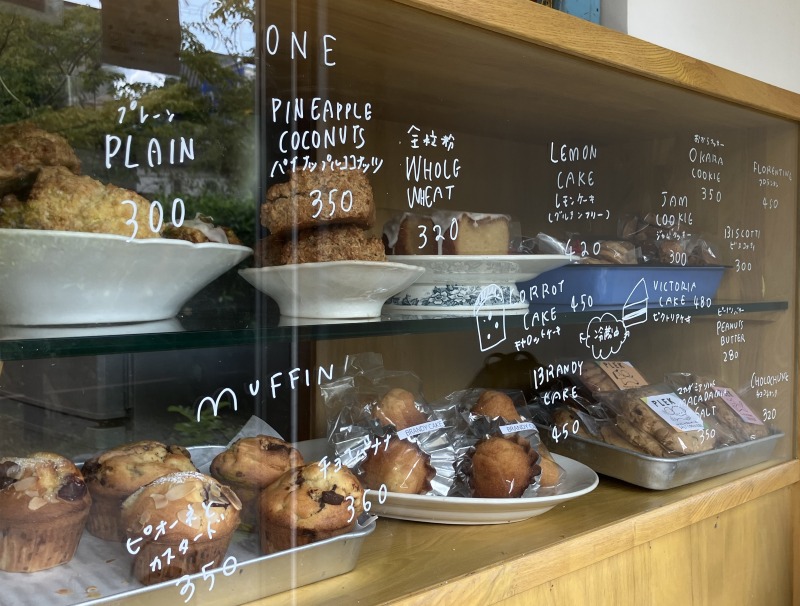 ONE
プレーン
PLAIN
300
PINEAPPLE
COCONUTS
350
全粒粉
WHOLE
WHEAT
320
LEMON
CAKE
レモンケーキ
(グルテンフリー)
420
おからクッキー
OKARA
COOKIE
350
JAM
COOKIE
ジャムクッキー
300
FLORENTINE
フロランタン
450
BISCOTTI
ビスコッティ
300
CARROT
CAKE
キャロットケーキ
450
冷蔵中
VICTORIA
CAKE 480
ビクトリアケーキ
PEANUTS
BUTTER
280
MUFFIN
チョコバナナ
360
ピオーネと
カスタード
350
BRANDY CAKE
BRANDY
CAKE
450
PLEK
PLEK
マカダミアソルト
MACADAMIA
SALT
350
320